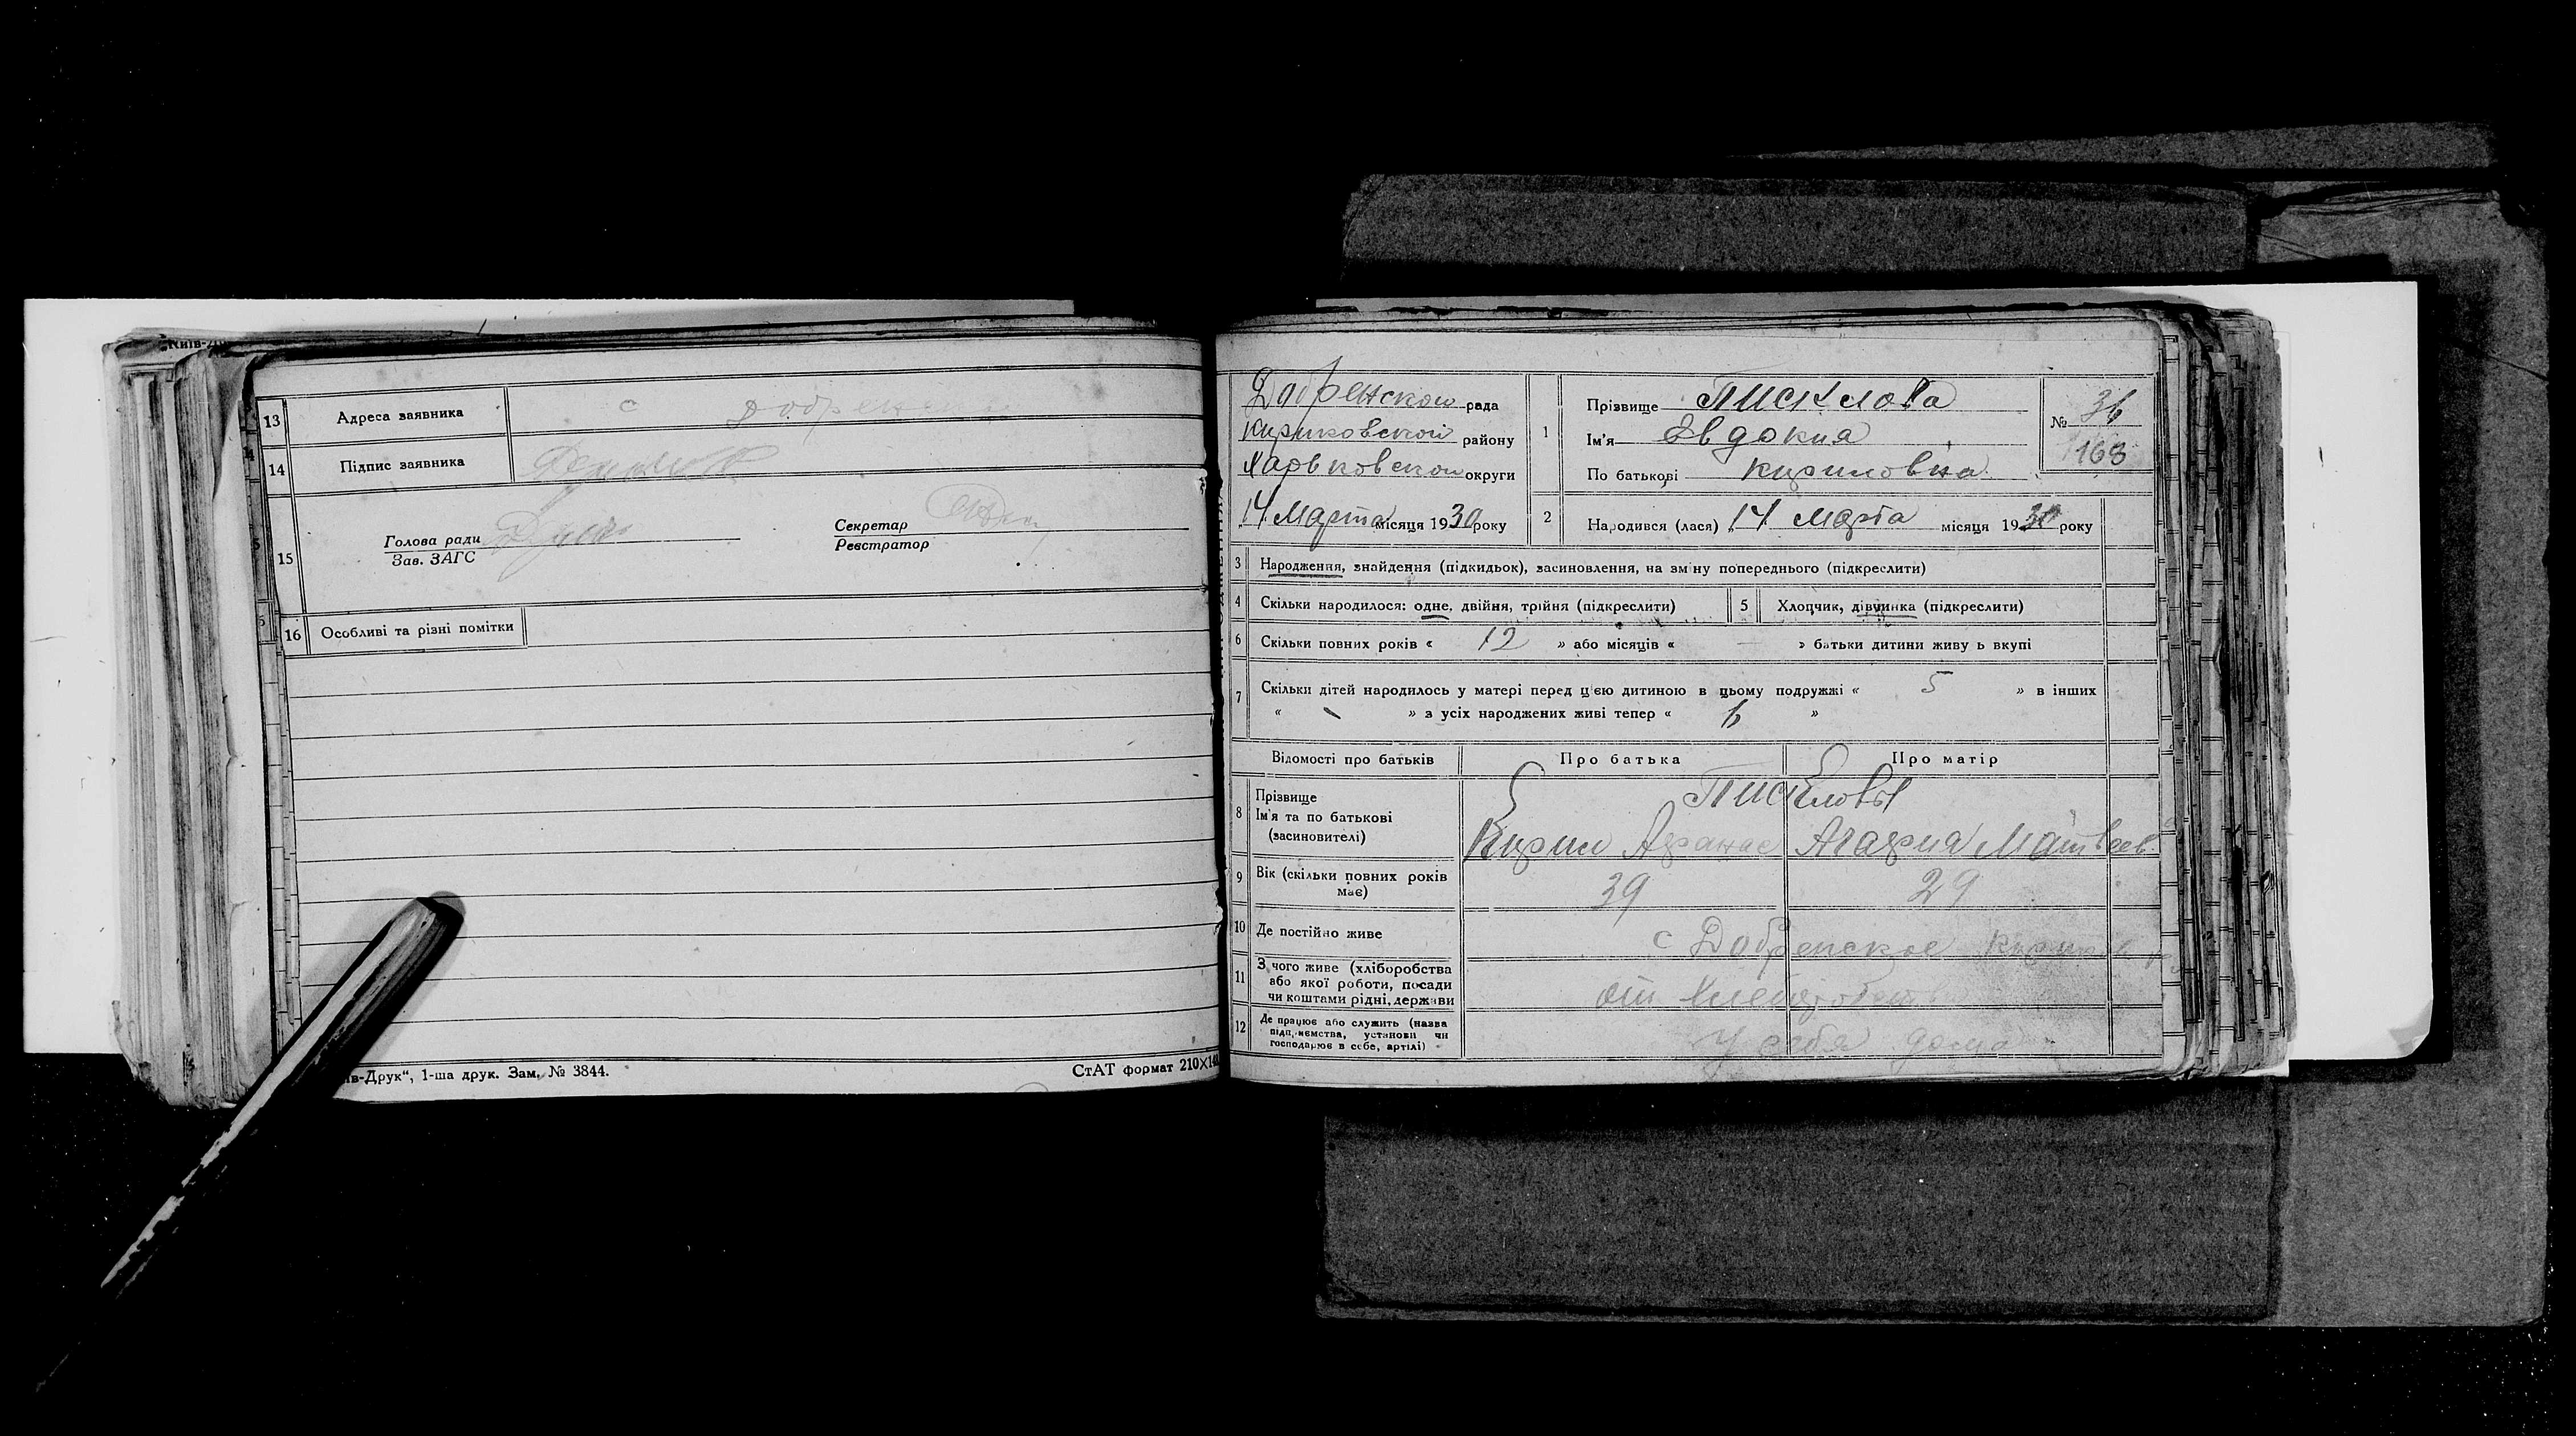 Київ-Д
13 Адреса заявника с
14 Підпис заявника
15 Голова ради
Зав. ЗАГС
Секретар
Реєстратор
16 Особливі та різні помітки
в-Друк“, 1-ша друк. Зам. № 3844.
СтАТ формат 210×14
Добренской рада
районy
Харьковской округи
14 Марта місяця 1930 року
1 Прізвище
Ім'я Евдокия
По батькові Кириловна
№ 36
168
2 Народився (лася) 14 марта місяця 1930 року
3 Народження, знайдення (підкидьок), засиновлення, на зміну попереднього (підкреслити)
4 Скільки народилося: одне, двійня, трійня (підкреслити) 5 Хлопчик, дівчинка (підкреслити)
6 Скільки повних років « 12 » або місяців « — » батьки дитини живу ь вкупі
7 Скільки дітей народилось у матері перед цією дитиною в цьому подружжі « 5 » в інших
« » з усіх народжених живі тепер « 6 »
Відомості про батьків Про батька Про матір
8 Прізвище
Ім'я та по батькові
(засновителі)
Кирил Афанас Агафия Матвеев
9 Вік (скільки повних років
має)
39 29
10 Де постійно живе с Добренское
11 З чого живе (хліборобства
або якої роботи, посади
чи коштами рідні, держави
от
12 Де працює або служить (назва
підп,иємства, установи чи
господарює в себе, артілі)
у себя дома